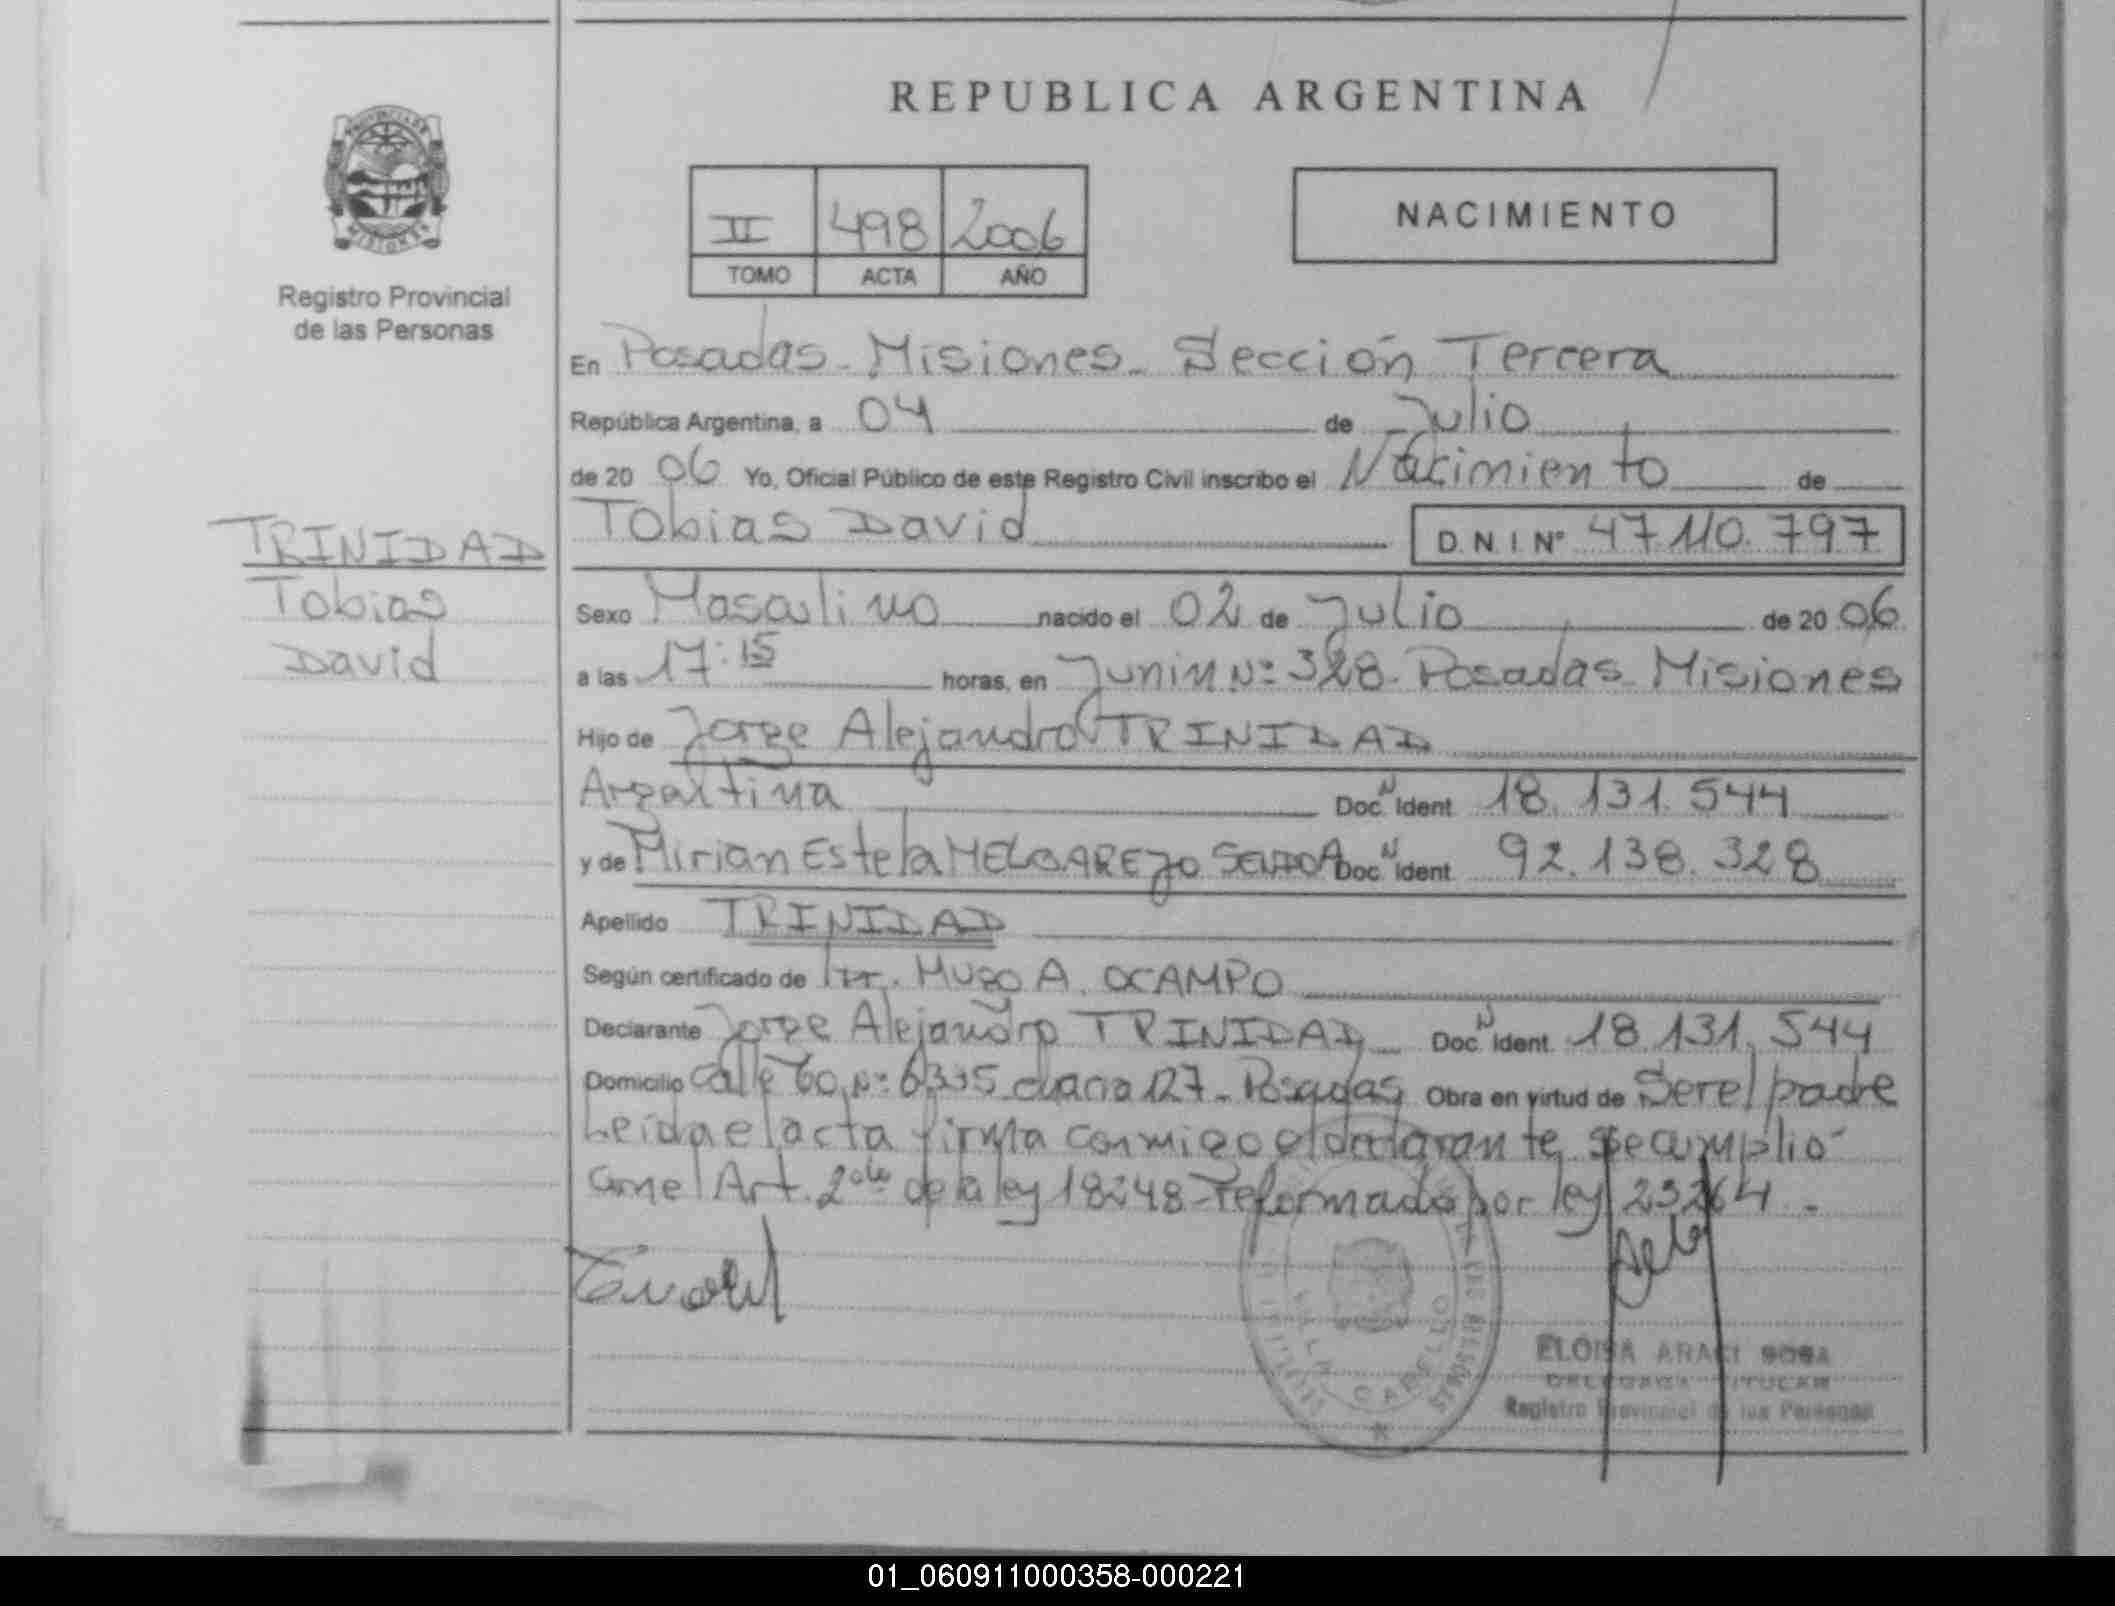 REPUBLICA ARGENTINA
PROVINCIA DE
MISIONES
Registro Provincial
de las Personas
II 498 2006
TOMO ACTA AÑO
NACIMIENTO
En Posadas - Misiones - Sección Tercera
República Argentina, a 04 de Julio
de 20 06 Yo, Oficial Público de este Registro Civil inscribo el Nacimiento de
Tobias David D.N.I. Nº 47.110.797
TRINIDAD
Tobias
David
Sexo Masculino nacido el 02 de Julio de 20 06
a las 17:15 horas, en Junin Nº 328 - Posadas - Misiones
Hijo de Jorge Alejandro TRINIDAD
Argentina Doc. N Ident 18.131.544
y de Mirian Estela MELGAREJO Doc. N Ident 92.138.328
Apellido TRINIDAD
Según certificado de Dr. HUGO A. OCAMPO
Declarante Jorge Alejandro TRINIDAD Doc. N Ident. 18.131.544
Domicilio Calle Nº chacra 127 - Posadas Obra en virtud de Ser el padre
Leida el acta firma conmigo el declarante se cumplio
con el Art. 2 de la ley 18248 - reformado por ley 23264 -
VILLA CABELLO
ELOISA ARACI SOSA
DELEGADA TITULAR
Registro Provincial de las Personas
01_060911000358-000221